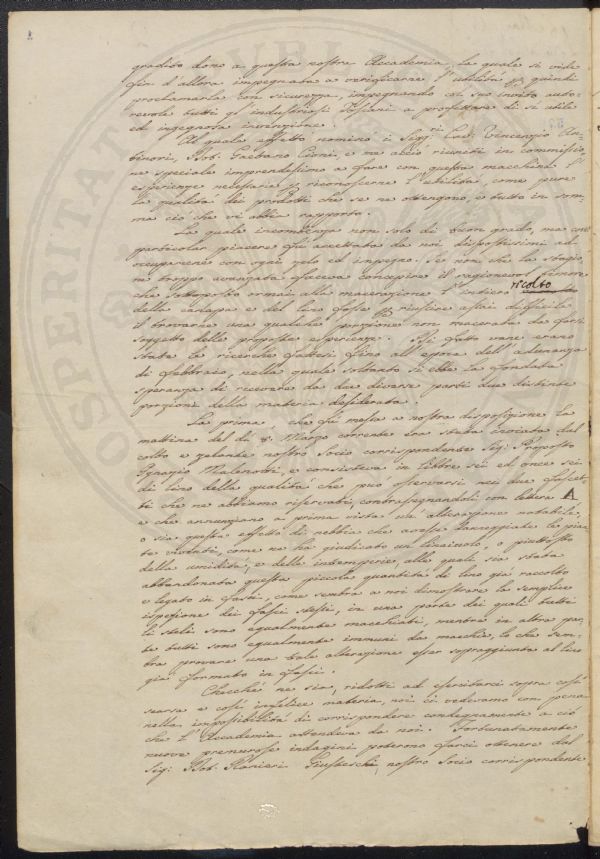 gradito dono a questa nostra Accademia, la quale si vide
fin d'allora impegnata a verificarne l'utilità, e quindi
proclamarla con sicurezza, impegnando col suo invito auto-
revole tutti gl'industriosi Toscani a profittare di sì utile
ed ingegnosa invenzione.
Al quale effetto nominò i Sigg.ri Cav. Vincenzio An-
tinori, Dot. Gaetano Cioni, e me acciò riuniti in commissio-
ne speciale imprendessimo a fare con questa macchina l'
esperienze necessarie p riconoscerne l'utilità, come pure
la qualità dei prodotti che se ne ottengono, e tutto in som-
ma ciò che vi abbia rapporto.
La quale incombenza non solo di buon grado, ma con
particolar piacere fu accettata da noi dispostissimi ad
occuparcene con ogni zelo ed impegno. Se non che la stagio-
ne troppo avanzata faceva concepire il ragionevol timore
che sottoposto ormai alla macerazione l'intiero ricolto
della canapa e del lino fosse p riuscire assai difficile
il trovarne una qualche porzione non macerata da farsi
soggetto delle proposte esperienze. Di fatto vane erano
state le ricerche fattesi fino all'epoca dell'adunanza
di febbraio, nella quale soltanto si ebbe la fondata
speranza di ricevere da due diverse parti due distinte
porzioni della materia desiderata.
La prima che fu messa a nostra disposizione la
mattina del dì 8. Marzo corrente era stata inviata dal
colto e zelante nostro Socio corrispondente Sig: Proposto
Ignazio Malenotti, e consisteva in libbre sei ed once sei
di lino della qualità che può osservarsi nei due fascet-
ti che ne abbiamo riservati, contrassegnandoli con lettera A
e che annunziano a prima vista un'alterazione notabile,
o sia questa effetto di nebbia che avesse danneggiate le pian-
te viventi, come ne ha giudicato un linaiolo, o piuttosto
della umidità, e delle intemperie, alle quali sia stata
abbandonata questa piccola quantità di lino già raccolto
e legato in fasci, come sembra a noi dimostrare la semplice
ispezione dei fasci stessi, in una parte dei quali tutti
li steli sono egualmente macchiati, mentre in altra par-
te tutti sono egualmente immuni da macchia, lo che sem-
bra provare una tale alterazione esser sopraggiunta al lino
già formato in fasci.
Checchè ne sia, ridotti ad esercitarci sopra così
scarsa e così infelice materia, noi ci vedevamo con pena
nella impossibilità di corrispondere condegnamente a ciò
che l'Accademia attendeva da noi. Fortunatamente
nuove premurose indagini poterono farci ottenere dal
Sig: Dot. Ranieri nostro Socio corrispondente